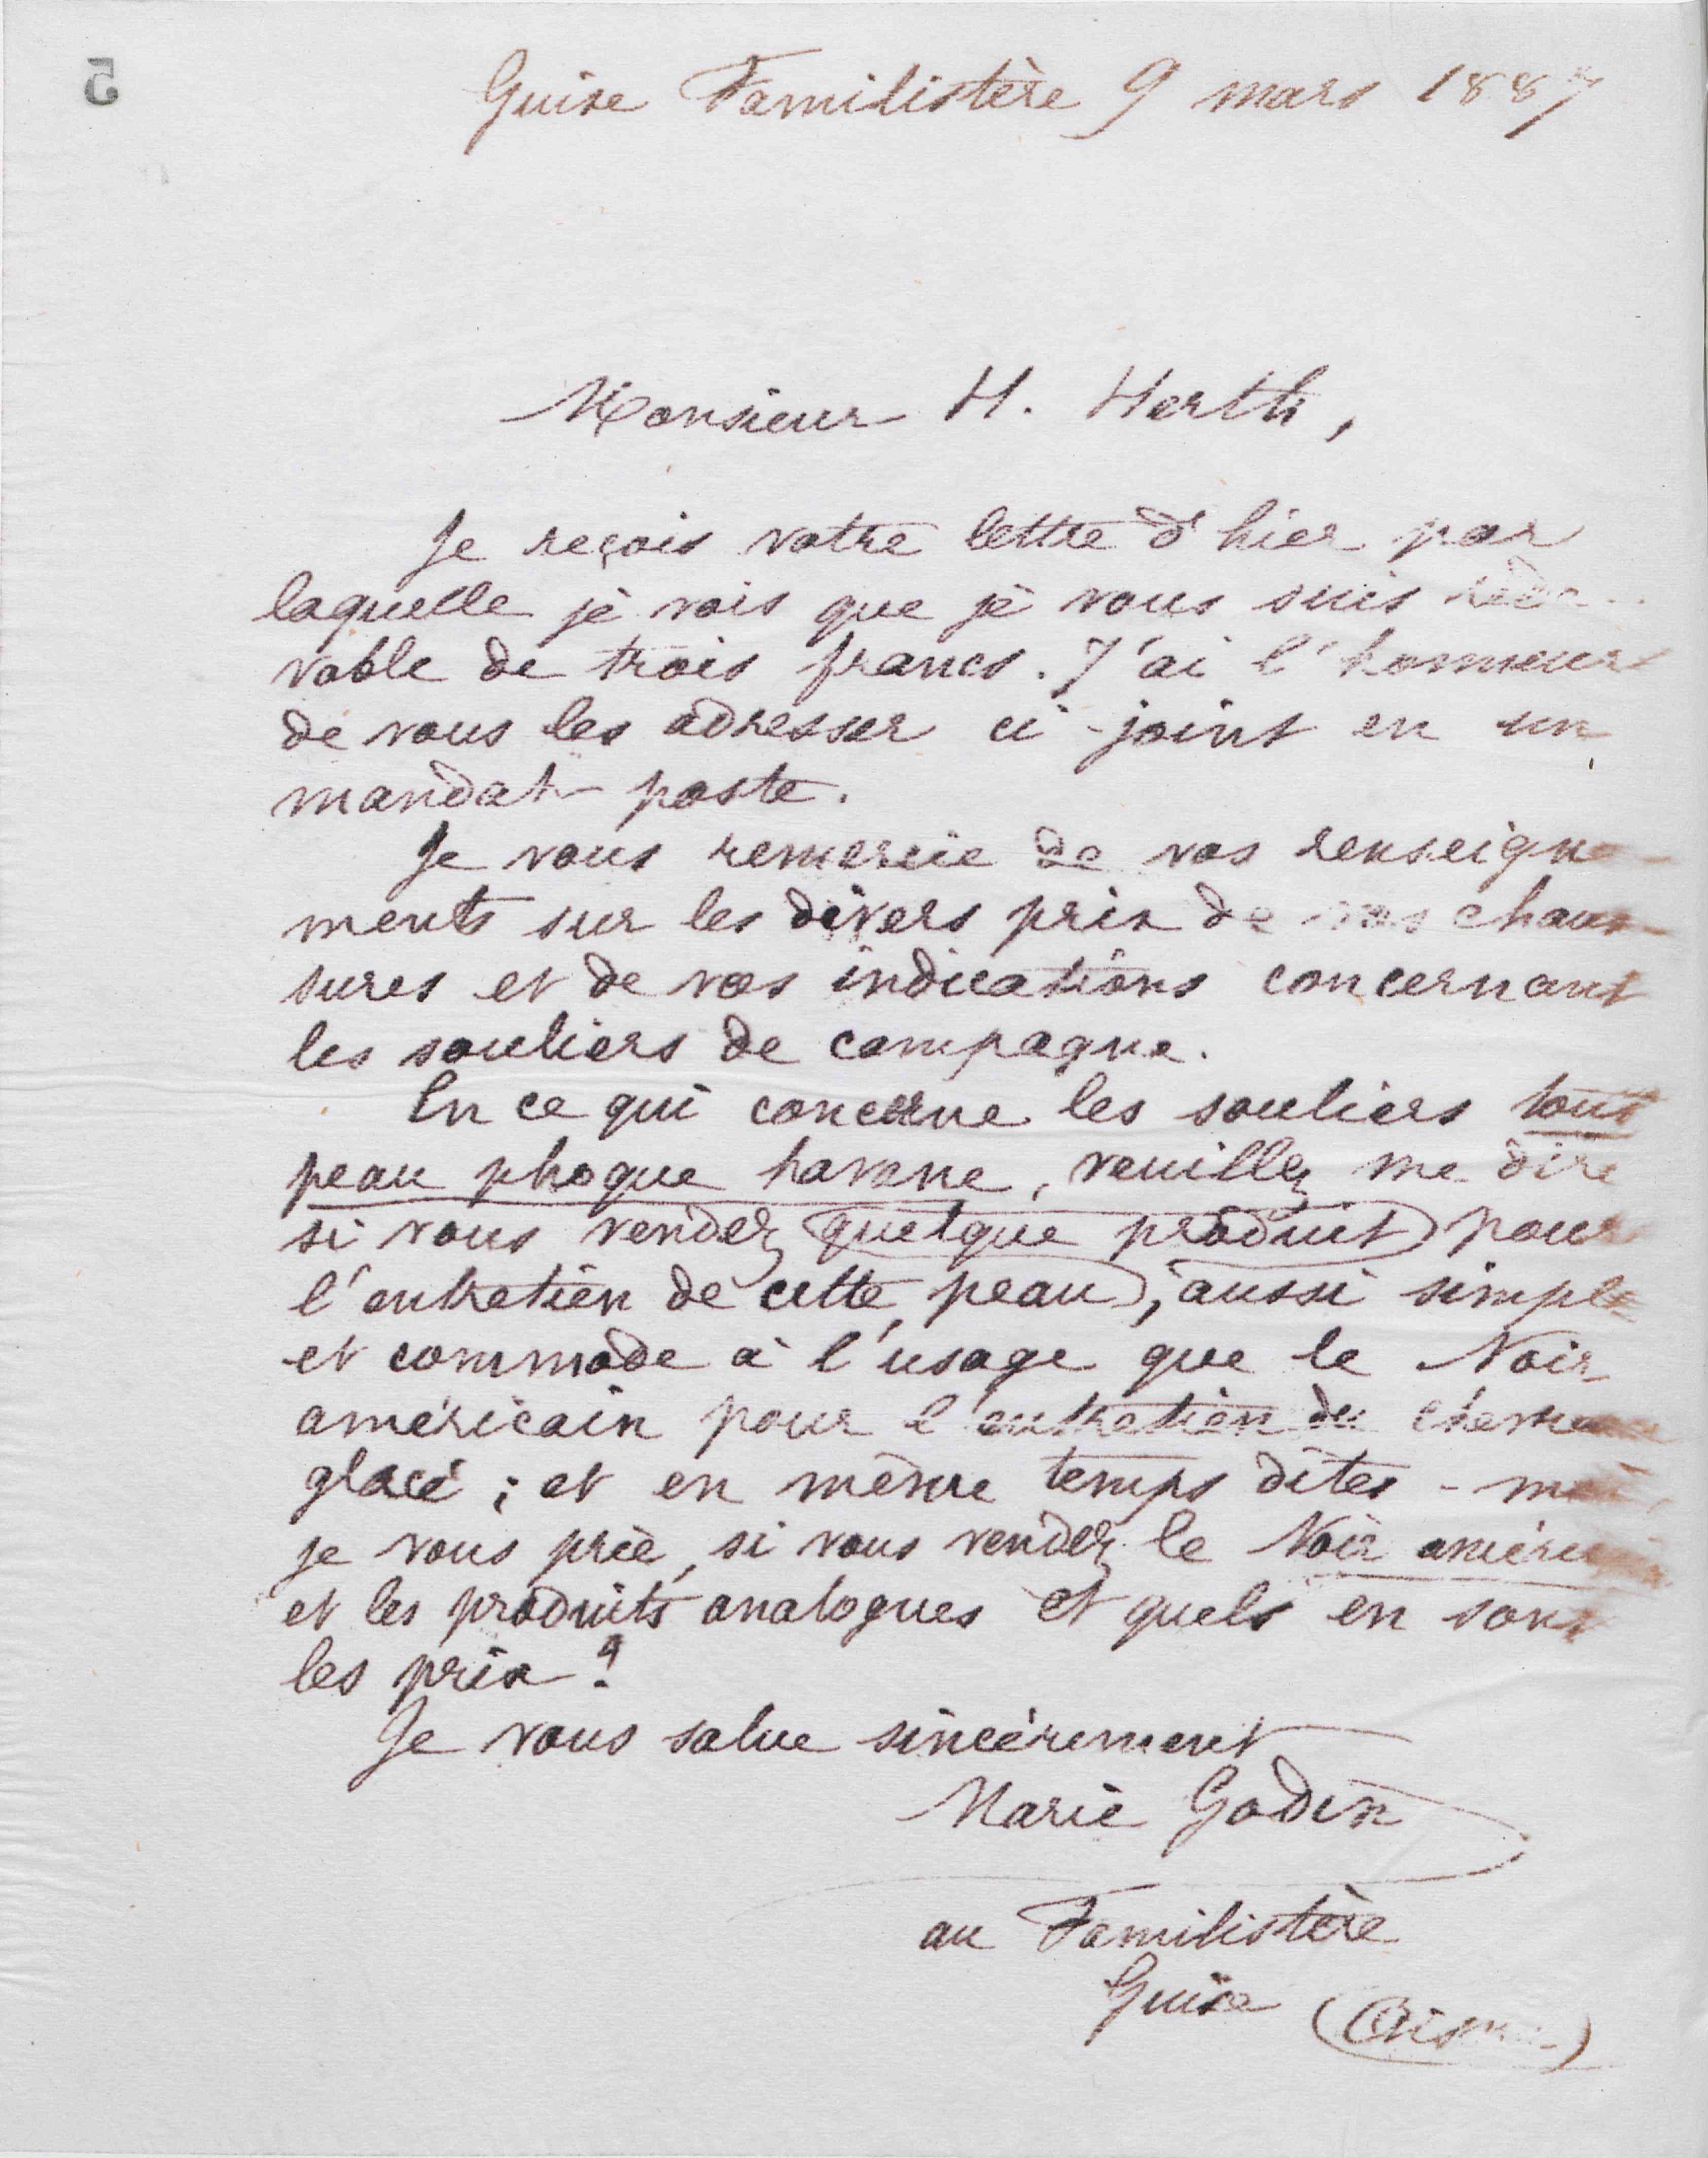 5
Guise Familistère 9 mars 1887
Monsieur H. Herth,
Je reçois votre lettre d'hier par
laquelle je vois que je vous suis rede-
vable de trois francs. J'ai l'honneur
de vous les adresser ci-joint en un
mandat-poste.
Je vous remercie de vos renseigne-
ments sur les divers prix de vos chaus-
sures et de vos indications concernant
les souliers de campagne.
En ce qui concerne les souliers tout
peau phoque havane, veuillez me dire
si vous vendez quelque produit pour
l'entretien de cette peau, aussi simple
et commode à l'usage que le Noir
américain pour l'entretien du
glacé ; et en même temps dites-moi,
je vous prie, si vous vendez le Noir américain
et les produits analogues et quels en sont
les prix ?
Je vous salue sincèrement
Marie Godin
au Familistère
Guise (Aisne)